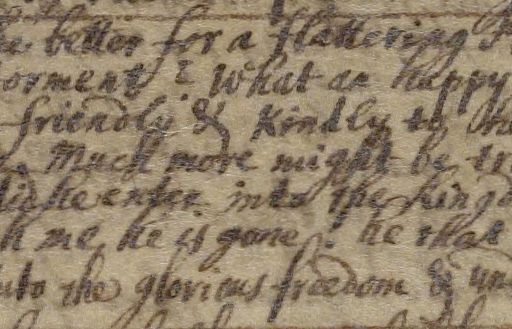 better for a flattering
torment? What an happy
friendly & kindly to
Much more might be
did he enter into the king
me, he is gone! he that
into the glorious freedom &